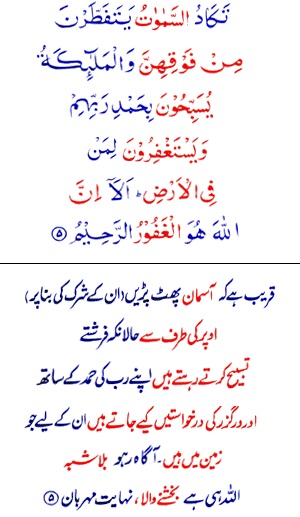 تَكَادُ السَّمٰوٰتُ يَتَفَطَّرْنَ
مِنْ فَوْقِهِنَّ وَالْمَلٰٓئِكَةُ
يُسَبِّحُوْنَ بِحَمْدِ رَبِّهِمْ
وَيَسْتَغْفِرُوْنَ لِمَنْ
فِي الْاَرْضِ ؕ اَلَاۤ اِنَّ
اللهَ هُوَ الْغَفُوْرُ الرَّحِيْمُ ۵
قریب ہے کہ آسمان پھٹ پڑیں (ان کے شرک کی بنا پر)
اوپر کی طرف سے حالانکہ فرشتے
تسبیح کرتے رہتے ہیں اپنے رب کی حمد کے ساتھ
اور درگزر کی درخواستیں کیے جاتے ہیں ان کے لیے جو
زمین میں ہیں۔ آگاہ رہو بلاشبہ
اللہ ہی ہے بخشنے والا، نہایت مہربان ۵